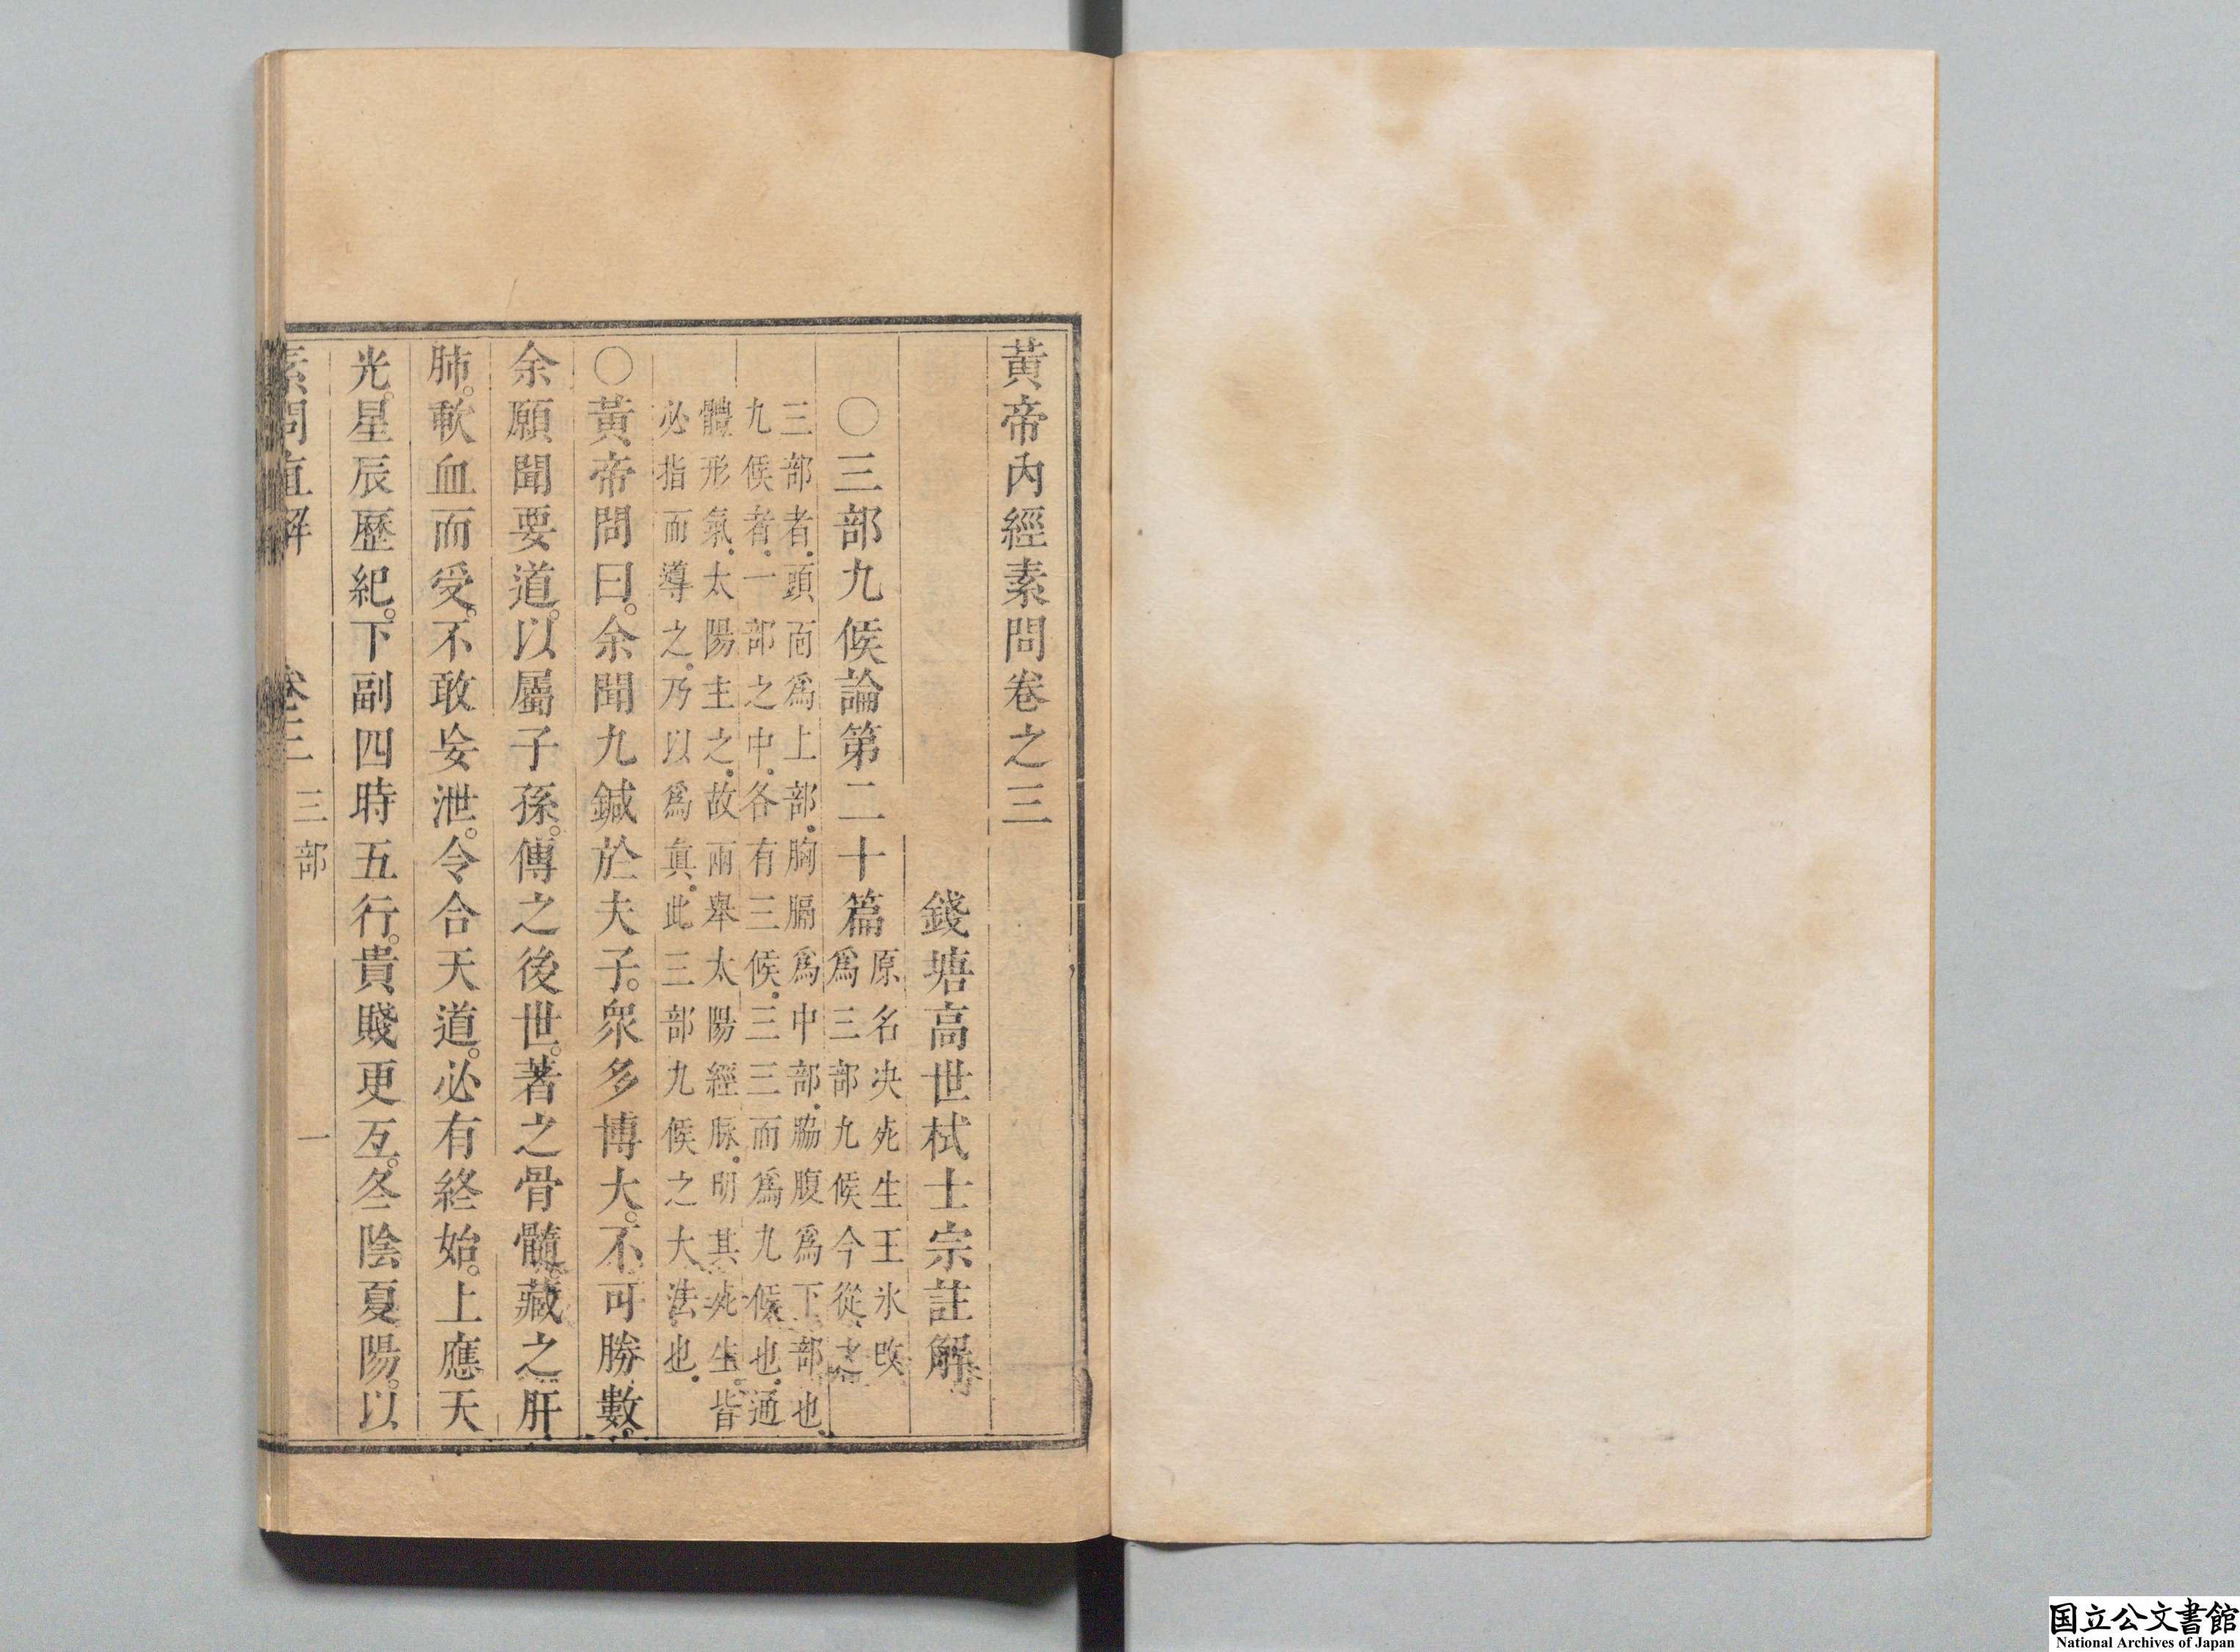 黃帝內經素問卷之三
錢塘高世栻士宗註解
〇三部九候論第二十篇
原名决死生王氷改
爲三部九候今從之
三部者頭面爲上部胸膈爲中部脇腹爲下部也
九候者一部之中各有三候三三而爲九候也通
體形氣太陽主之故兩舉太陽經脉明其死生皆
必指而導之乃以爲真此三部九候之大法也
〇黃帝問曰余聞九鍼於夫子衆多博大不可勝數
余願聞要道以屬子孫傳之後世著之骨髓藏之肝
肺歃血而受不敢妄泄令合天道必有終始上應天
光星辰歷紀下副四時五行貴賤更互冬陰夏陽以
素問直解 卷三 三部 一
国立公文書館
National Archives of Japan